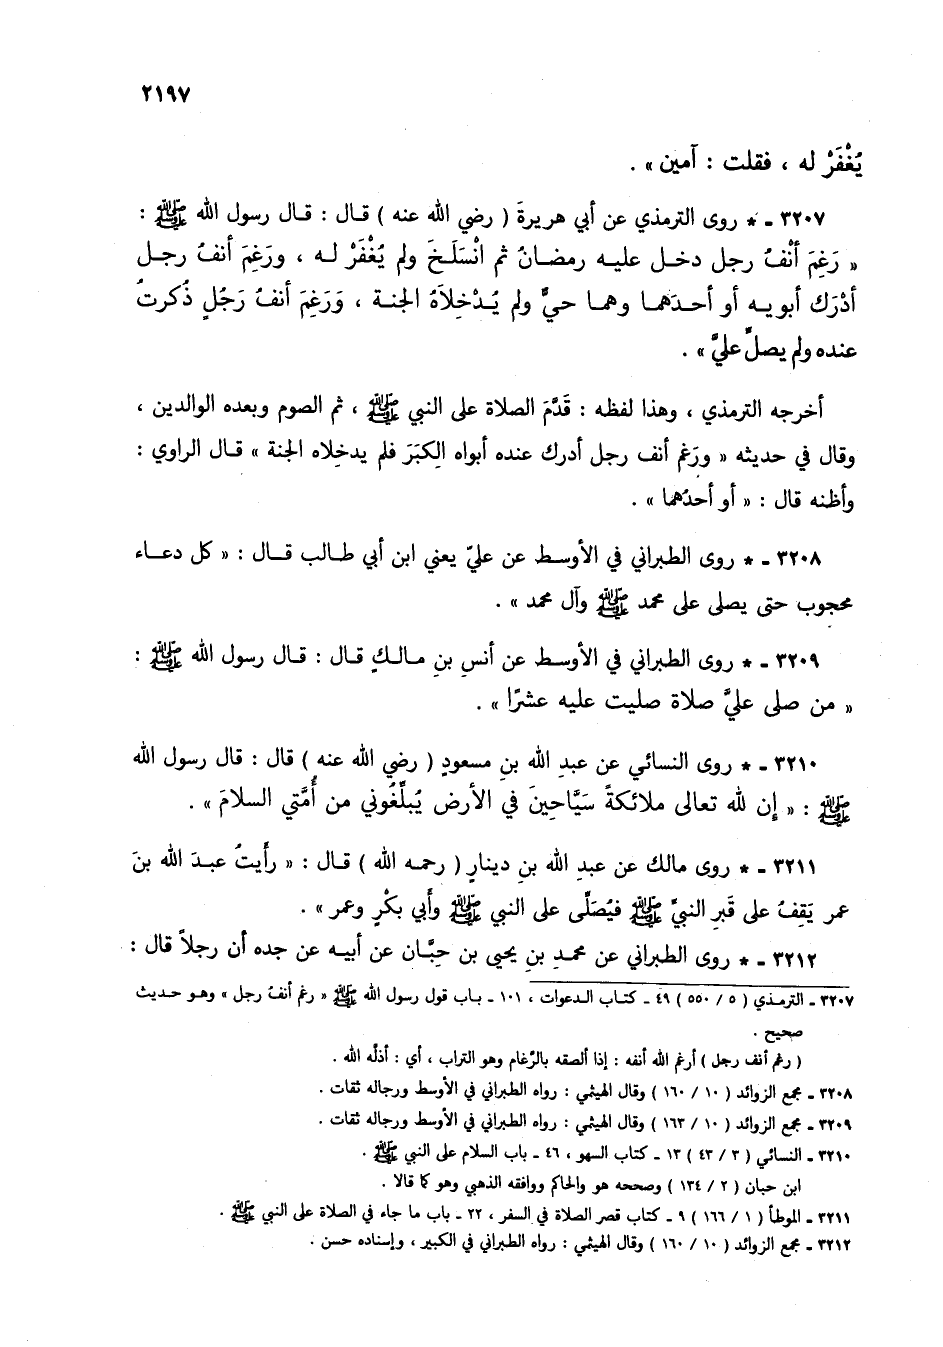 ٢١٩٧
يُغْفَرْ له ، فقلت : آمين » .
٣٢٠٧ ـ * روى الترمذي عن أبي هريرةَ ( رضي الله عنه ) قال : قال رسول الله ﷺ :
« رَغِمَ أنْفُ رجل دخل عليه رمضانُ ثم انْسَلَخَ ولم يُغْفَرْ له ، ورَغِمَ أنفُ رجل
أدْرَك أبويه أو أحدَهما وهما حيٌّ ولم يُدْخِلاَهُ الجنة ، وَرَغِمَ أنفُ رَجُلٍ ذُكرتُ
عنده ولم يصلِّ عليَّ » .
أخرجه الترمذي ، وهذا لفظه : قَدَّمَ الصلاة على النبي ﷺ ، ثم الصوم وبعده الوالدين ،
وقال في حديثه « ورَغم أنف رجل أدرك عنده أبواه الكِبَرَ فلم يدخِلاه الجنة » قال الراوي :
وأظنه قال : « أو أحدُهما » .
٣٢٠٨ ـ * روى الطبراني في الأوسط عن عليّ يعني ابن أبي طالب قال : « كل دعاء
محجوب حتى يصلى على محمد ﷺ وآل محمد » .
٣٢٠٩ ـ * روى الطبراني في الأوسط عن أنسِ بنِ مالكٍ قال : قال رسول الله ﷺ :
« من صلى عليَّ صلاة صليت عليه عشرًا » .
٣٢١٠ ـ * روى النسائي عن عبدِ الله بنِ مسعودٍ ( رضي الله عنه ) قال : قال رسول الله
ﷺ : « إن لله تعالى ملائكةً سَيَّاحينَ في الأرض يُبلِّغُوني من أُمَّتي السلامَ » .
٣٢١١ ـ * روى مالك عن عبدِ الله بنِ دينارٍ ( رحمه الله ) قال : « رأيتُ عبدَ الله بنَ
عمر يَقِفُ على قَبرِ النبيِّ ﷺ فيُصَلِّى على النبي ﷺ وأبي بكْرٍ وعمر » .
٣٢١٢ ـ * روى الطبراني عن محمدِ بنِ يحيى بن حِبَّان عن أبيه عن جده أن رجلاً قال :
٣٢٠٧ ـ الترمذي ( ٥ / ٥٥٠ ) ٤٩ ـ كتاب الدعوات ، ١٠١ ـ باب قول رسول الله ﷺ « رغم أنفُ رجل » وهو حديث
صحيح .
( رغم أنف رجل ) أرغم الله أنفه : إذا ألصقه بالرَّغام وهو التراب ، أي : أذلَّه الله .
٣٢٠٨ ـ مجمع الزوائد ( ١٠ / ١٦٠ ) وقال الهيثمي : رواه الطبراني في الأوسط ورجاله ثقات .
٣٢٠٩ ـ مجمع الزوائد ( ١٠ / ١٦٣ ) وقال الهيثمي : رواه الطبراني في الأوسط ورجاله ثقات .
٣٢١٠ ـ النسائي ( ٣ / ٤٣ ) ١٣ ـ كتاب السهو ، ٤٦ ـ باب السلام على النبي ﷺ .
ابن حبان ( ٢ / ١٣٤ ) وصححه هو والحاكم ووافقه الذهبي وهو كما قالا .
٣٢١١ ـ الموطأ ( ١ / ١٦٦ ) ٩ ـ كتاب قصر الصلاة في السفر ، ٢٢ ـ باب ما جاء في الصلاة على النبي ﷺ .
٣٢١٢ ـ مجمع الزوائد ( ١٠ / ١٦٠ ) وقال الهيثمي : رواه الطبراني في الكبير ، وإسناده حسن .